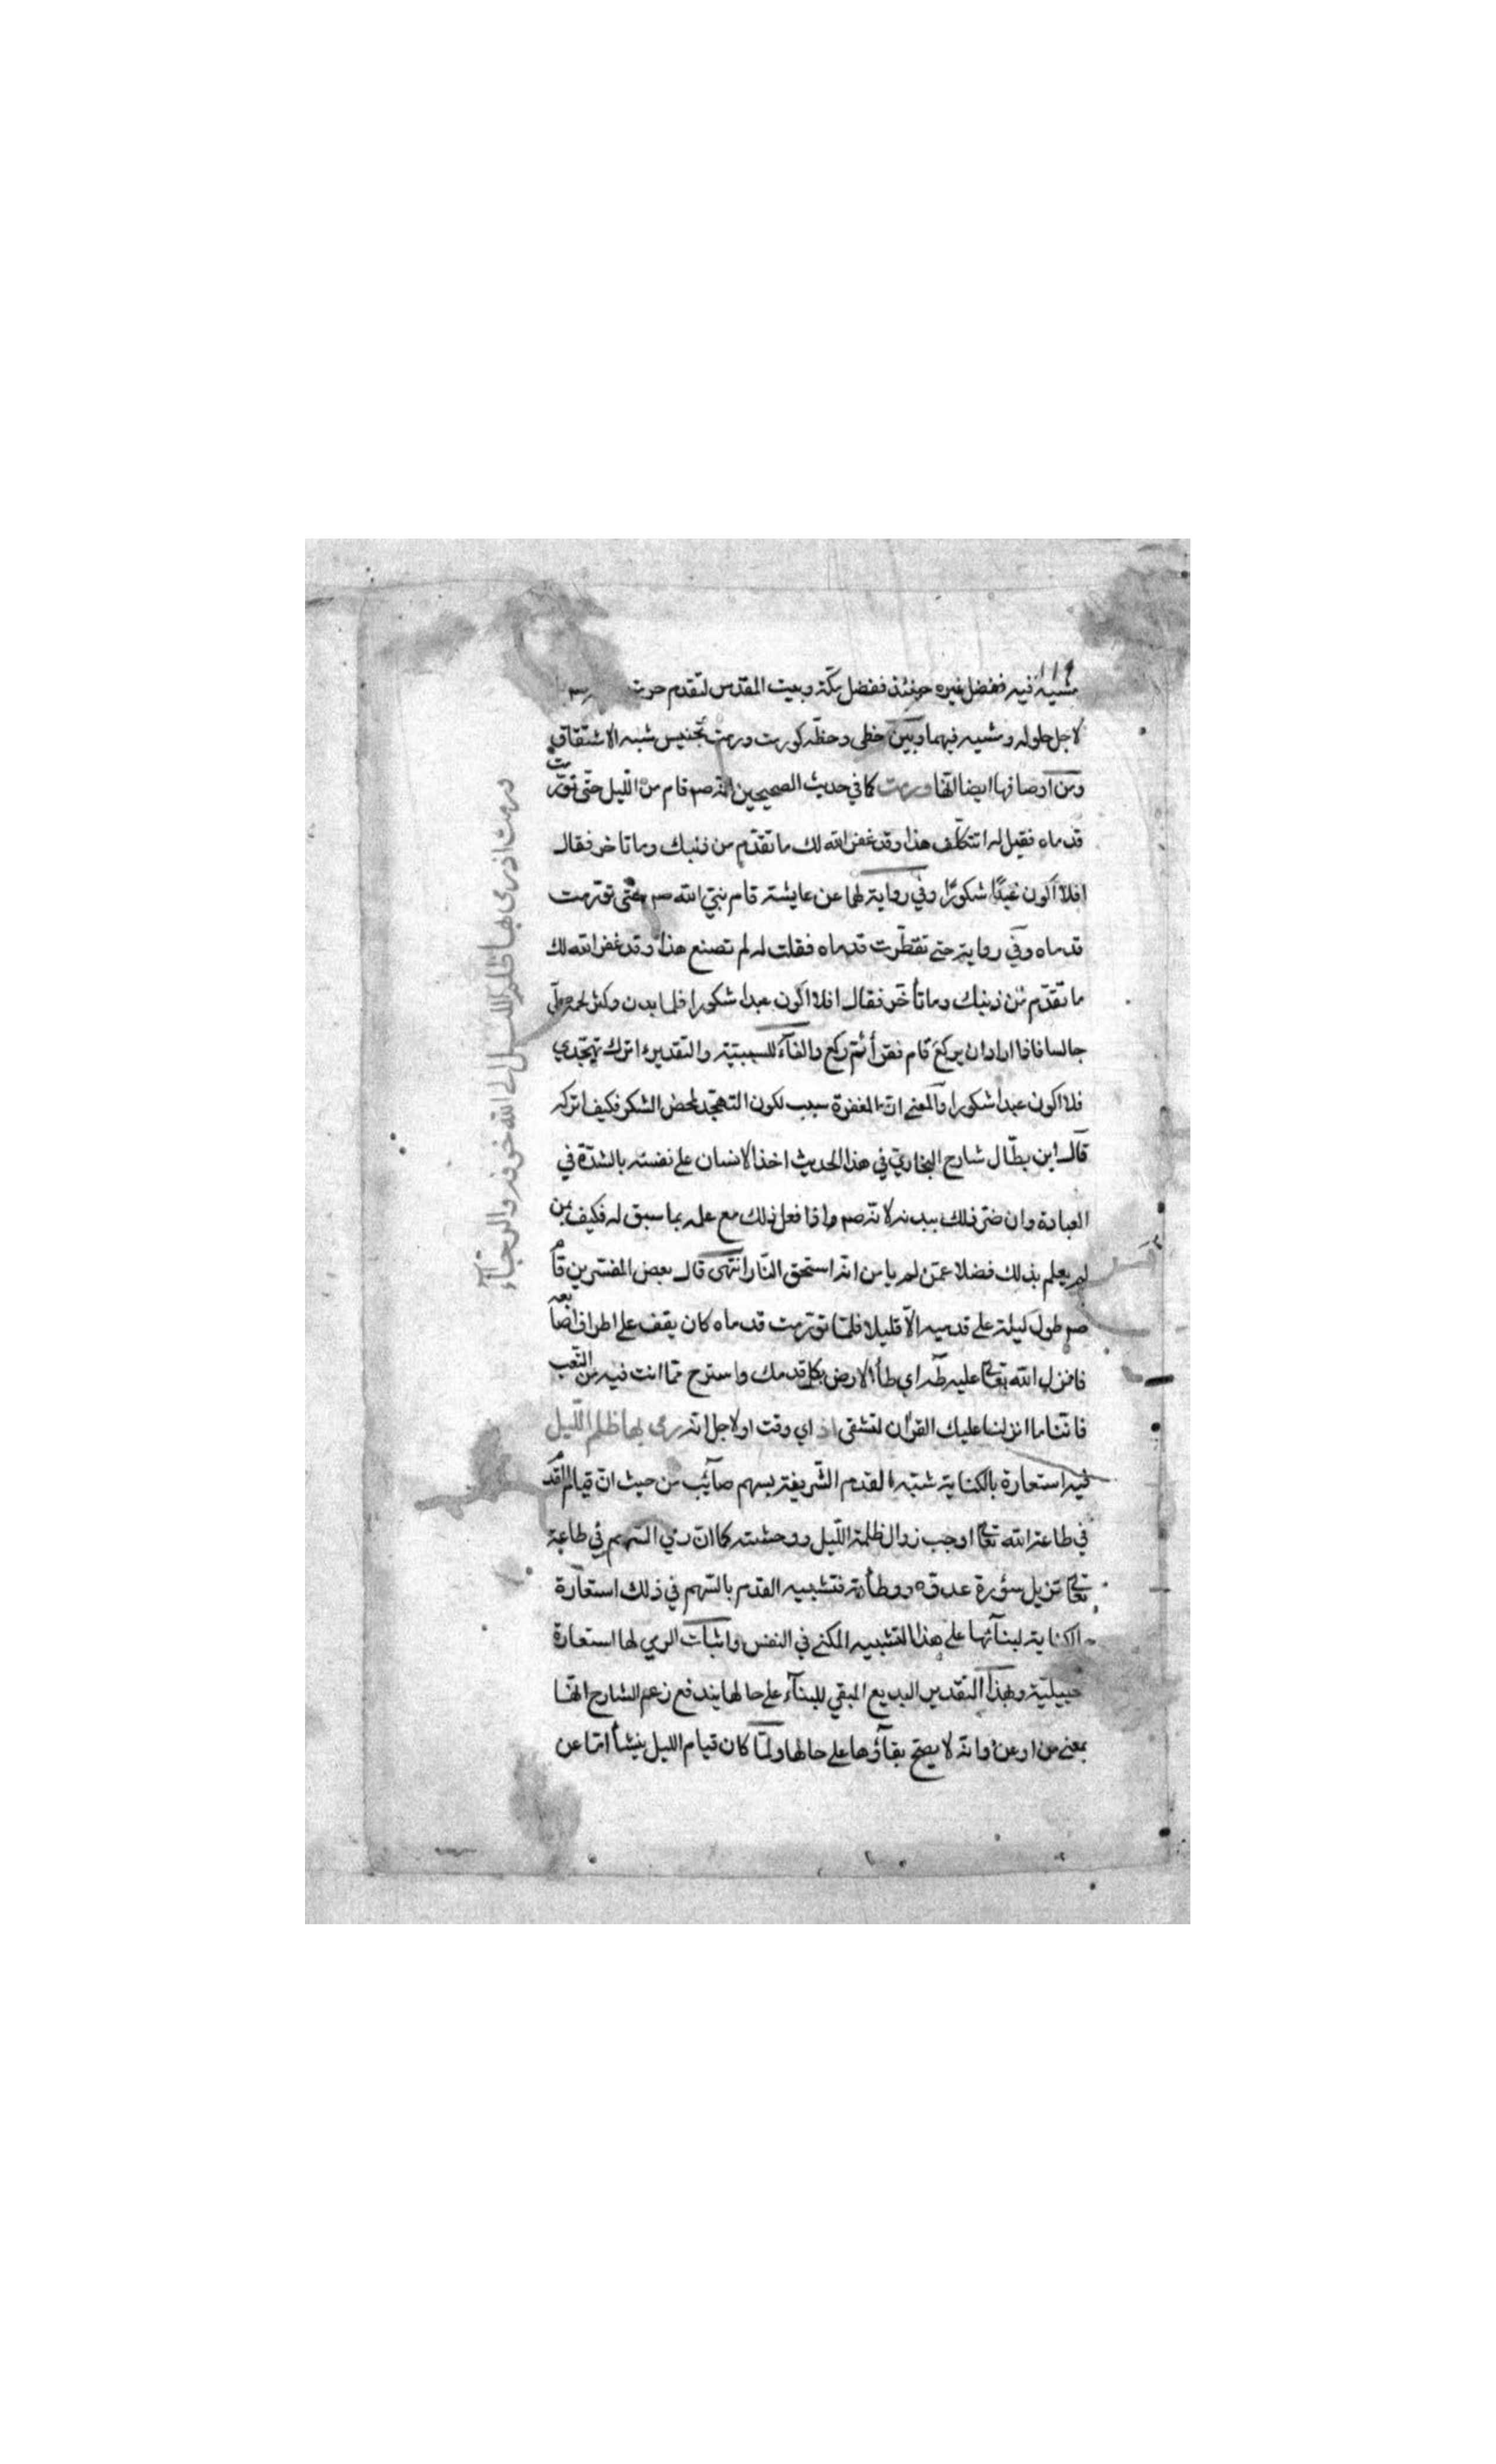 ١١٩
مشيه فيه ففضل غيره حينئذ ففضل مكة وبيت المقدس لتقدم
لاجل حلوله ومشيه فيهما وبين خطى وحظه كورت ورمت تجنيس شبه الاشتقاق
ومن اوصافها ايضا انها ورمت كما في حديث الصحيحين انه صم قام من الليل حتى تورمت
قدماه فقيل له اتتكلف هذا وقد غفر الله لك ما تقدم من ذنبك وما تاخر فقال
افلا اكون عبدًا شكورًا وفي رواية لهما عن عايشة قام نبي الله صم حتى تورمت
قدماه وفي رواية حتى تفطرت قدماه فقلت له لم تصنع هذا وقد غفر الله لك
ما تقدم من ذنبك وما تأخر فقال افلا اكون عبدا شكورا فلما بدن وكثر لحمه صلى
جالسا فاذا اراد ان يركع قام فقرأ ثم ركع والفآء للسببية والتقديرء اترك تهجدي
فلا اكون عبدا شكورا والمعنى ان المغفرة سبب لكون التهجد لمحض الشكر فكيف اتركه
قال ابن بطال شارح البخاري في هذا الحديث اخذ الانسان على نفسه بالشدة في
العبادة وان ضر ذلك ببدنه لانه صم واذا فعل ذلك مع علمه بما سبق له فكيف من
لم يعلم بذلك فضلا عمن لم يامن انه استحق النار انتهى قال بعض المفسرين قام
صم طول ليلة على قدميه الا قليلا فلما تورمت قدماه كان يقف على اطراف اصابعه
فانزل الله تعالى عليه طه اي طأ الارض بكل قدمك واسترح مما انت فيه من التعب
فاننا ما انزلنا عليك القرآن لتشقى اذ اي وقت او لاجل انه رمى بها ظلم الليل
فيه استعارة بالكناية شبه القدم الشريفة بسهم صآئب من حيث ان قيام القدم
في طاعة الله تعالى اوجب زوال ظلمة الليل ووحشته كما ان رمي السهم في طاعة
تعالى تزيل سؤرة عدوه ووطأته فتشبيه القدم بالسهم في ذلك استعارة
بالكناية لبنآئها على هذا التشبيه المكنى في النفس واثبات الرمي لها استعارة
تخييلية وبهذا التقدير البديع المبقي للبنآء على حالها يندفع زعم الشارح انها
بمعنى من او عن وانه لا يصح بقآؤها على حالها ولما كان قيام الليل ينشأ اما عن
ورمت اذ رمى بها ظلم الليل الى الله خوفه والرجآء